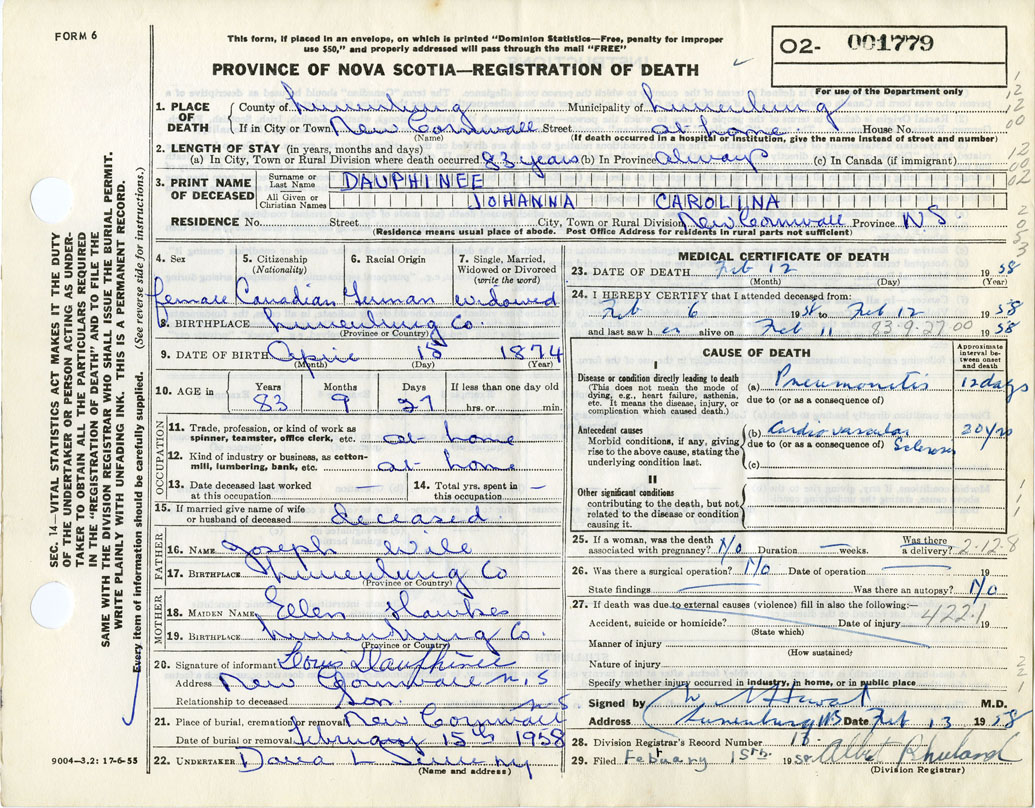 FORM 6
This form, if placed in an envelope, on which is printed "Dominion Statistics—Free, penalty for improper
use $50," and properly addressed will pass through the mail "FREE"
O2- 001779
For use of the Department only
PROVINCE OF NOVA SCOTIA—REGISTRATION OF DEATH
1. PLACE OF DEATH
County of Lunenburg Municipality of Lunenburg
If in City or Town New Cornwall Street at home House No.
(Name) (If death occurred in a hospital or institution, give the name instead of street and number)
2. LENGTH OF STAY (in years, months and days)
(a) In City, Town or Rural Division where death occurred 83 years (b) In Province always (c) In Canada (if immigrant)
3. PRINT NAME OF DECEASED
Surname or Last Name DAUPHINEE
All Given or Christian Names JOHANNA CAROLINA
RESIDENCE No. Street City, Town or Rural Division New Cornwall Province N.S.
(Residence means usual place of abode. Post Office Address for residents in rural parts not sufficient)
4. Sex
female
5. Citizenship (Nationality)
Canadian
6. Racial Origin
German
7. Single, Married, Widowed or Divorced (write the word)
widowed
8. BIRTHPLACE Lunenburg Co.
(Province or Country)
9. DATE OF BIRTH April 15 1874
(Month) (Day) (Year)
10. AGE in Years Months Days If less than one day old
83 9 27 hrs. or min.
OCCUPATION
11. Trade, profession, or kind of work as spinner, teamster, office clerk, etc. at home
12. Kind of industry or business, as cotton-mill, lumbering, bank, etc. at home
13. Date deceased last worked at this occupation —
14. Total yrs. spent in this occupation —
15. If married give name of wife or husband of deceased deceased.
FATHER
16. NAME Joseph Wile
17. BIRTHPLACE Lunenburg Co
(Province or Country)
MOTHER
18. MAIDEN NAME Ellen Hawkes
19. BIRTHPLACE Lunenburg Co.
(Province or Country)
20. Signature of informant Louis Dauphinee
Address New Cornwall N.S
Relationship to deceased Son.
21. Place of burial, cremation or removal New Cornwall N.S
Date of burial or removal February 15th 1958
22. UNDERTAKER
(Name and address)
MEDICAL CERTIFICATE OF DEATH
23. DATE OF DEATH Feb 12 1958
(Month) (Day) (Year)
24. I HEREBY CERTIFY that I attended deceased from:
Feb 6 1958 to Feb 12 1958
and last saw her alive on Feb 11 1958
83-9-27 00
CAUSE OF DEATH
Approximate interval between onset and death
I
Disease or condition directly leading to death (a) Pneumonitis 12 days
(This does not mean the mode of dying, e.g., heart failure, asthenia, etc. It means the disease, injury, or complication which caused death.)
due to (or as a consequence of)
Antecedent causes (b) Cardiovascular 20 yrs
Morbid conditions, if any, giving rise to the above cause, stating the underlying condition last.
due to (or as a consequence of) Sclerosis
(c)
II
Other significant conditions
contributing to the death, but not related to the disease or condition causing it.
25. If a woman, was the death associated with pregnancy? No Duration — weeks. Was there a delivery?
2-12-8
26. Was there a surgical operation? No Date of operation 19
State findings Was there an autopsy? No
27. If death was due to external causes (violence) fill in also the following:
422.1
Accident, suicide or homicide? Date of injury 19
(State which)
Manner of injury
(How sustained)
Nature of injury
Specify whether injury occurred in industry, in home, or in public place
Signed by M.D.
Address Lunenburg NS Date Feb 13 1958
28. Division Registrar's Record Number
29. Filed Febuary 15th. 1958
(Division Registrar)
SEC. 14—VITAL STATISTICS ACT MAKES IT THE DUTY
OF THE UNDERTAKER OR PERSON ACTING AS UNDER-
TAKER TO OBTAIN ALL THE PARTICULARS REQUIRED
IN THE "REGISTRATION OF DEATH" AND TO FILE THE
SAME WITH THE DIVISION REGISTRAR WHO SHALL ISSUE THE BURIAL PERMIT.
WRITE PLAINLY WITH UNFADING INK. THIS IS A PERMANENT RECORD.
Every item of information should be carefully supplied. (See reverse side for instructions.)
9004—3.2: 17-6-55